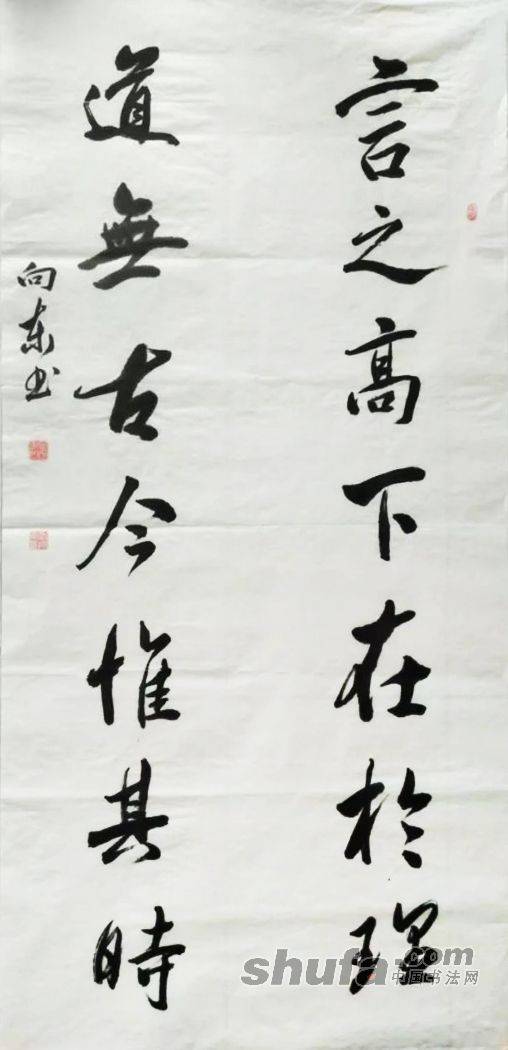 言之高下在於理
道無古今惟其時
向东书
shufa.com
中国书法网